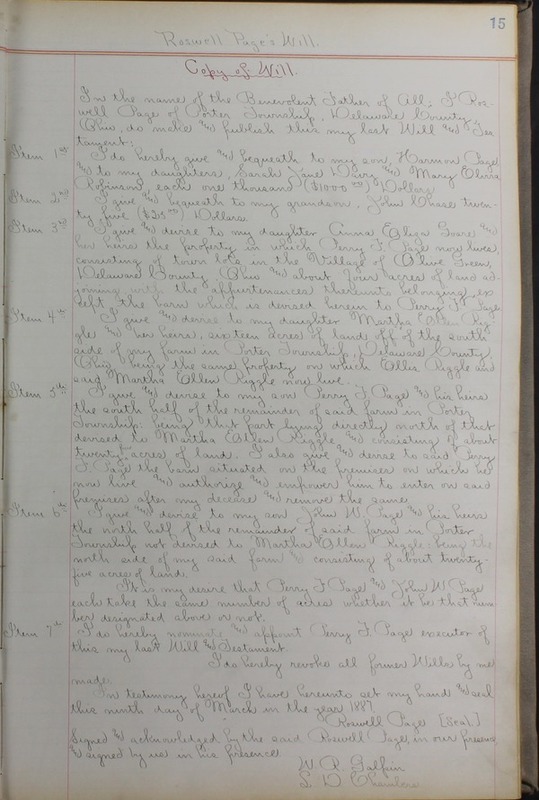 15
Roswell Page's Will.
Copy of Will.
In the name of the Benevolent Father of All; I Ros-
well Page of Porter Township, Delaware County,
Ohio, do make and publish this my last Will and Tes-
tament:
Item 1st I do hereby give and bequeath to my son, Harmon Page
and to my daughters, Sarah Jane and Mary
Robinson, each one thousand ($1000.00) Dollars
Item 2nd I give and bequeath to my grandson, John Chase twen-
ty five ($25.00) Dollars.
Item 3rd I give and devise to my daughter Anna and
her heirs the property in which Perry F. Page now lives,
consisting of town lots in the Village of Olive Green,
Delaware County Ohio and about four acres of land ad-
joining with the appurtenances thereunto belonging, ex-
cept the barn which is devised herein to Perry F. Page
Item 4th I give and devise to my daughter Martha Ellen Rig-
gle and her heirs, sixteen acres of land off of the south
side of my farm in Porter Township, Delaware County,
Ohio being the same property on which Ellis Riggle and
said Martha Ellen Riggle now live.
Item 5th I give and devise to my son Perry F. Page and his heirs
the south half of the remainder of said farm in Porter
Township being that part lying directly north of that
devised to Martha Ellen Riggle and consisting of about
twenty acres of land. I also give and devise to said Perry
F. Page the barn situated on the premises on which he
now lives and authorize and empower him to enter on said
premises after my decease and remove the same.
Item 6th I give and devise to my son John W. Page and his heirs
the north half of the remainder of said farm in Porter
Township not devised to Martha Ellen Riggle: being the
north side of my said farm and consisting of about twenty-
five acres of land.
It is my desire that Perry F. Page and John W. Page
each take the same number of acres whether it be that num-
ber designated above or not.
Item 7th I do hereby nominate and appoint Perry F. Page executor of
this my last Will and Testament.
I do hereby revoke all former Wills by me
made.
In testimony hereof I have hereunto set my hand and seal
this ninth day of March in the year 1887.
Roswell Page [Seal]
Signed and acknowledged by the said Roswell Page, in our presence
and signed by us in his presence
W. R.